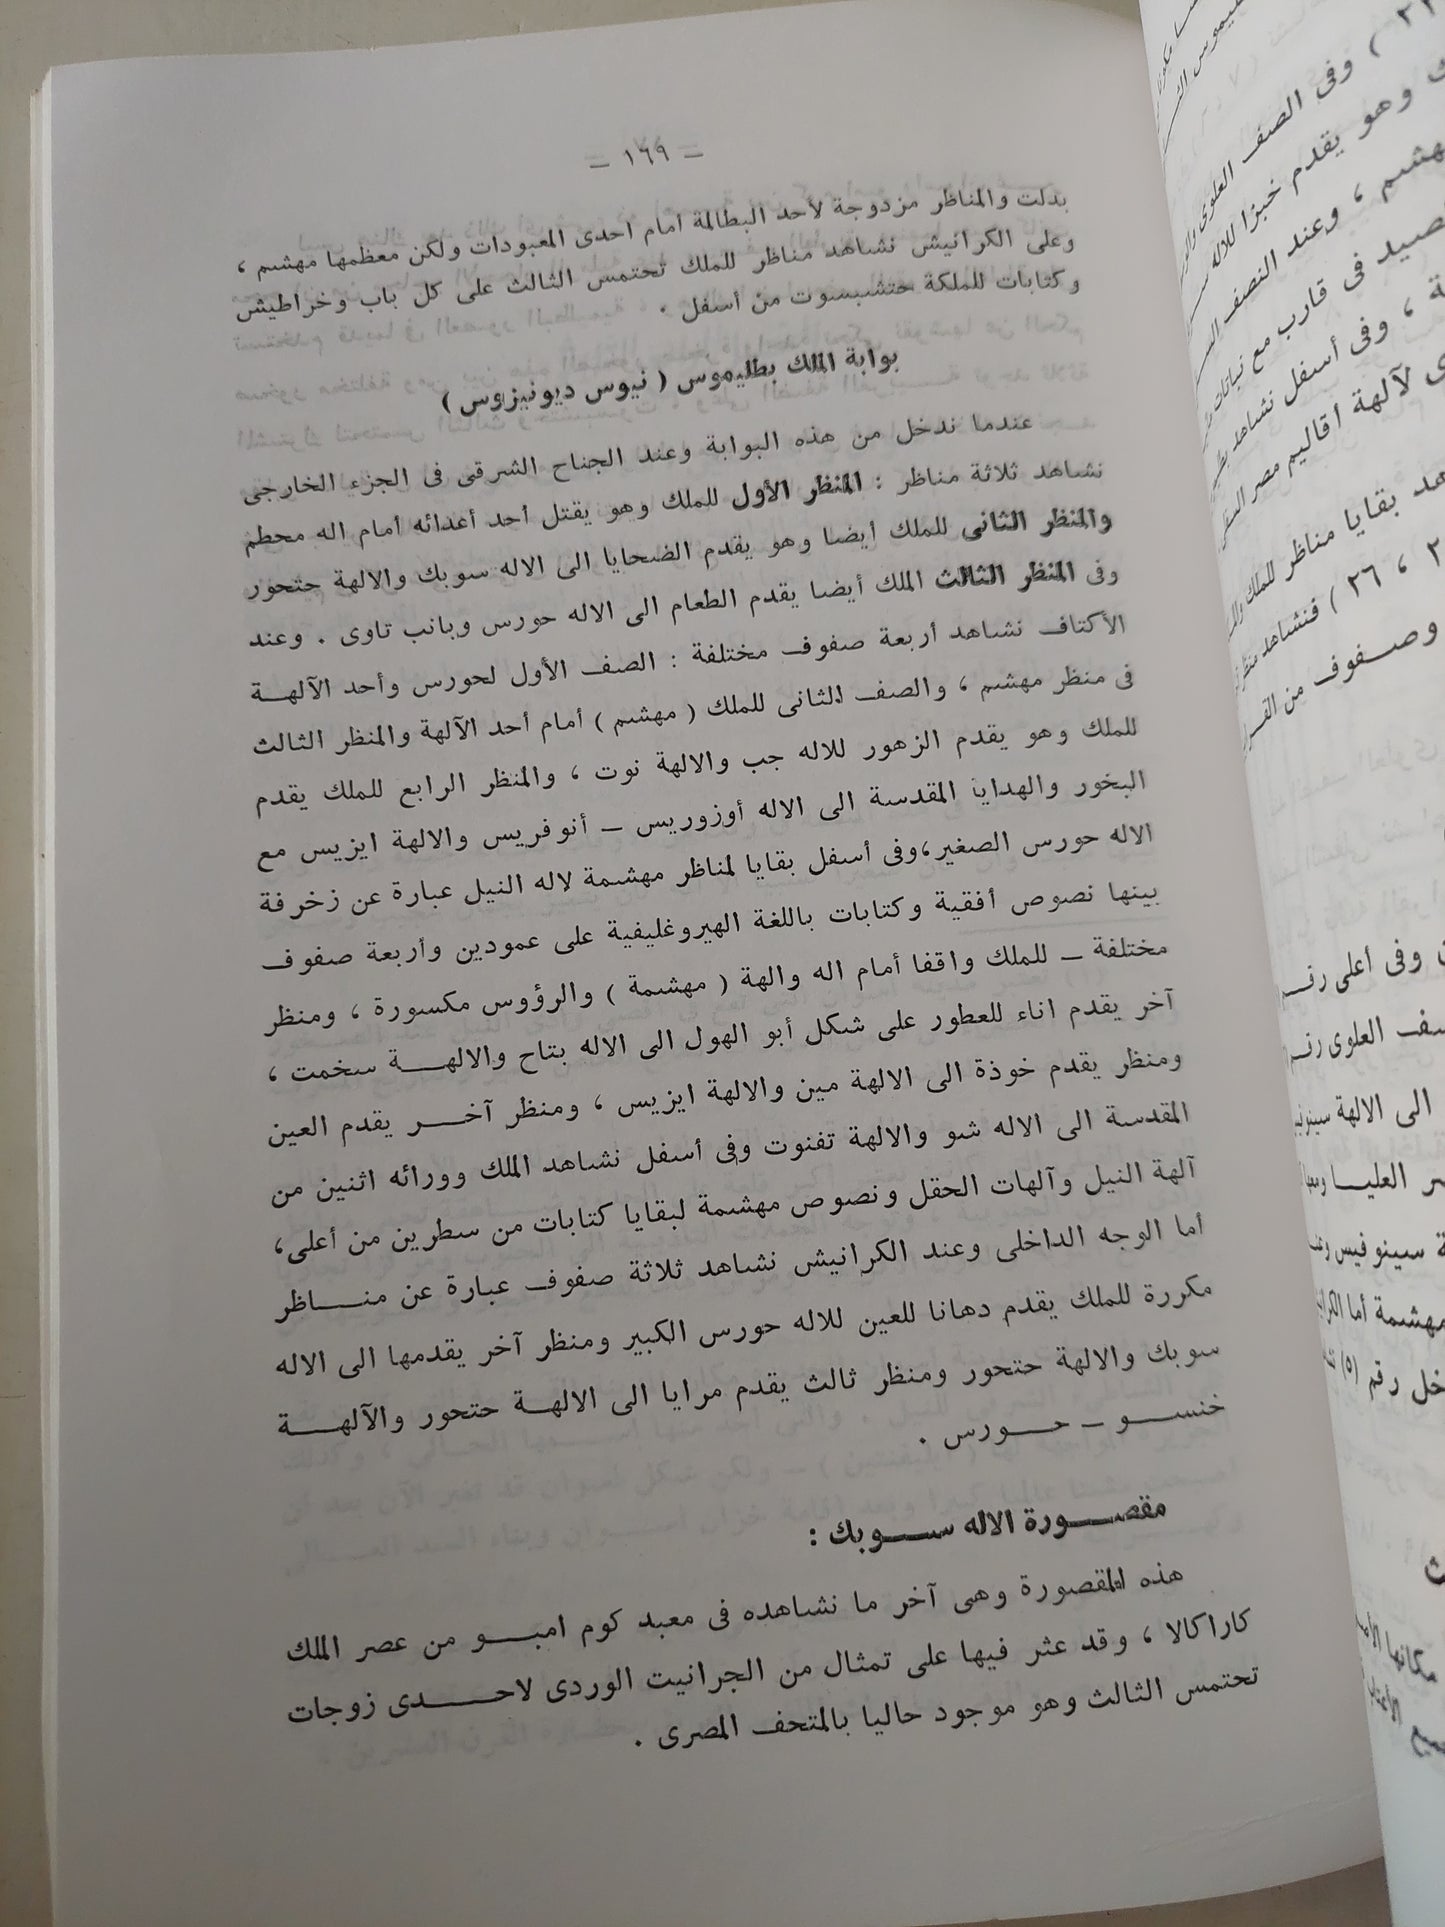 – ١٦٩ –
بدلت والمناظر مزدوجة لأحد البطالمة امام احدى المعبودات ولكن معظمها مهشم ،
وعلى الكرانيش نشاهد مناظر للملك تحتمس الثالث على كل باب وخراطيش
وكتابات للملكة حتشبسوت من أسفل .
بوابة الملك بطليموس ( نيوس ديونيزوس )
عندما ندخل من هذه البوابة وعند الجناح الشرقى فى الجزء الخارجى
نشاهد ثلاثة مناظر : المنظر الأول للملك وهو يقتل أحد أعدائه أمام اله محطم
والمنظر الثانى للملك أيضا وهو يقدم الضحايا الى الاله سوبك والالهة حتحور
وفى المنظر الثالث الملك أيضا يقدم الطعام الى الاله حورس وبانب تاوى . وعند
الأكتاف نشاهد أربعة صفوف مختلفة : الصف الأول لحورس وأحد الآلهة
فى منظر مهشم ، والصف الثانى للملك ( مهشم ) أمام أحد الآلهة والمنظر الثالث
للملك وهو يقدم الزهور للاله جب والالهة نوت ، والمنظر الرابع للملك يقدم
البخور والهدايا المقدسة الى الاله أوزوريس – أنوفريس والالهة ايزيس مع
الاله حورس الصغير،وفى أسفل بقايا لمناظر مهشمة لاله النيل عبارة عن زخرفة
بينها نصوص أفقية وكتابات باللغة الهيروغليفية على عمودين وأربعة صفوف
مختلفة – للملك واقفا أمام اله والهة ( مهشمة ) والرؤوس مكسورة ، ومنظر
آخر يقدم اناء للعطور على شكل أبو الهول الى الاله بتاح والالهة سخمت ،
ومنظر يقدم خوذة الى الالهة مين والالهة ايزيس ، ومنظر آخر يقدم العين
المقدسة الى الاله شو والالهة تفنوت وفى أسفل نشاهد الملك وورائه اثنين من
آلهة النيل وآلهات الحقل ونصوص مهشمة لبقايا كتابات من سطرين من أعلى،
أما الوجه الداخلى وعند الكرانيش نشاهد ثلاثة صفوف عبارة عن مناظر
مكررة للملك يقدم دهانا للعين للاله حورس الكبير ومنظر آخر يقدمها الى الاله
سوبك والالهة حتحور ومنظر ثالث يقدم مرايا الى الالهة حتحور والآلهة
خنسو – حورس .
مقصورة الاله سوبك :
هذه المقصورة وهى آخر ما نشاهده فى معبد كوم امبو من عصر الملك
كاراكالا ، وقد عثر فيها على تمثال من الجرانيت الوردى لاحدى زوجات
تحتمس الثالث وهو موجود حاليا بالمتحف المصرى .